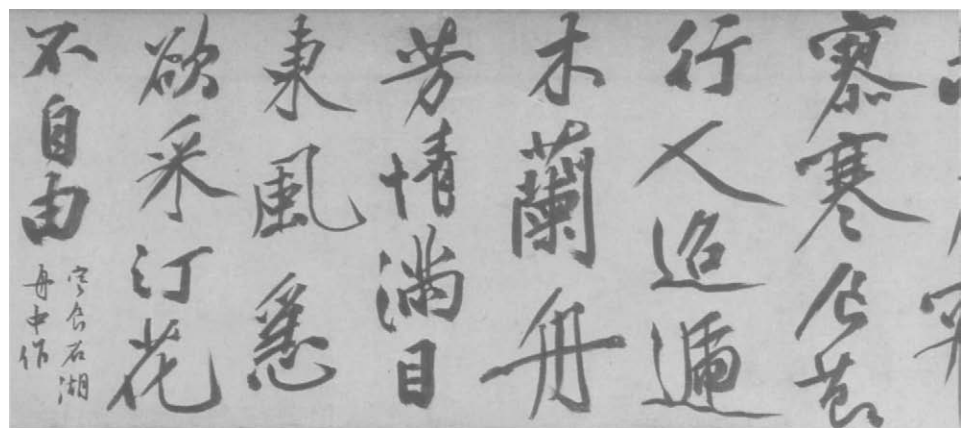 寒食
行人迢遞
木蘭舟
芳情滿目
東風惡
欲采汀花
不自由
寒食石湖
舟中作